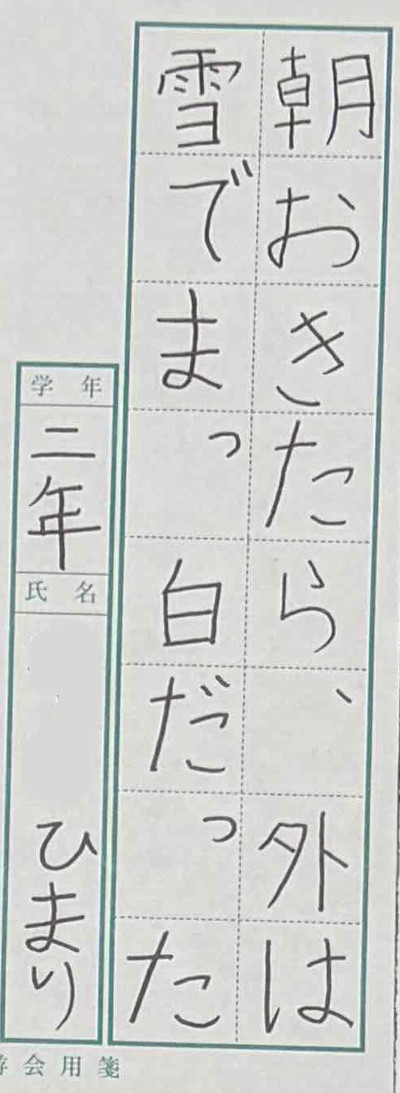 朝おきたら、外は
雪でまっ白だった
学年
二年
氏名
ひまり
会用箋